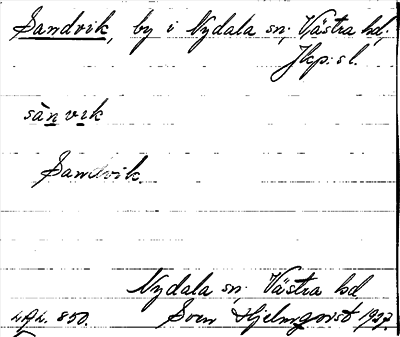 Sandvik, by i Nydala sn; Västra hd;
Jkp: sl.
sàn vik
Sandvik.
Nydala sn; Västra hd
LAL. 850. Sven Hjelmqvist 1937.